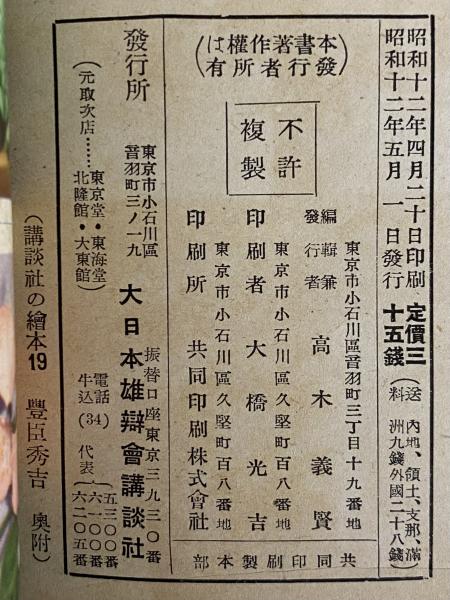 昭和十二年四月二十日印刷
昭和十二年五月一日發行
定價三十五錢
(送料 內地、領土、支那、滿洲九錢外國二十八錢)
東京市小石川區音羽町三丁目十九番地
編輯兼發行者 高木義賢
東京市小石川區久堅町百八番地
印刷者 大橋光吉
東京市小石川區久堅町百八番地
印刷所 共同印刷株式會社
共同印刷製本部
不許複製
(本書著作權は發行者所有)
發行所
東京市小石川區音羽町三ノ一九
大日本雄辯會講談社
振替口座東京三九三〇番
電話牛込(34)代表
五一三〇番
六一〇〇番
六二〇五番
(元取次店……東京堂・東海堂
北隆館・大東館)
(講談社の繪本19 豐臣秀吉 奧附)